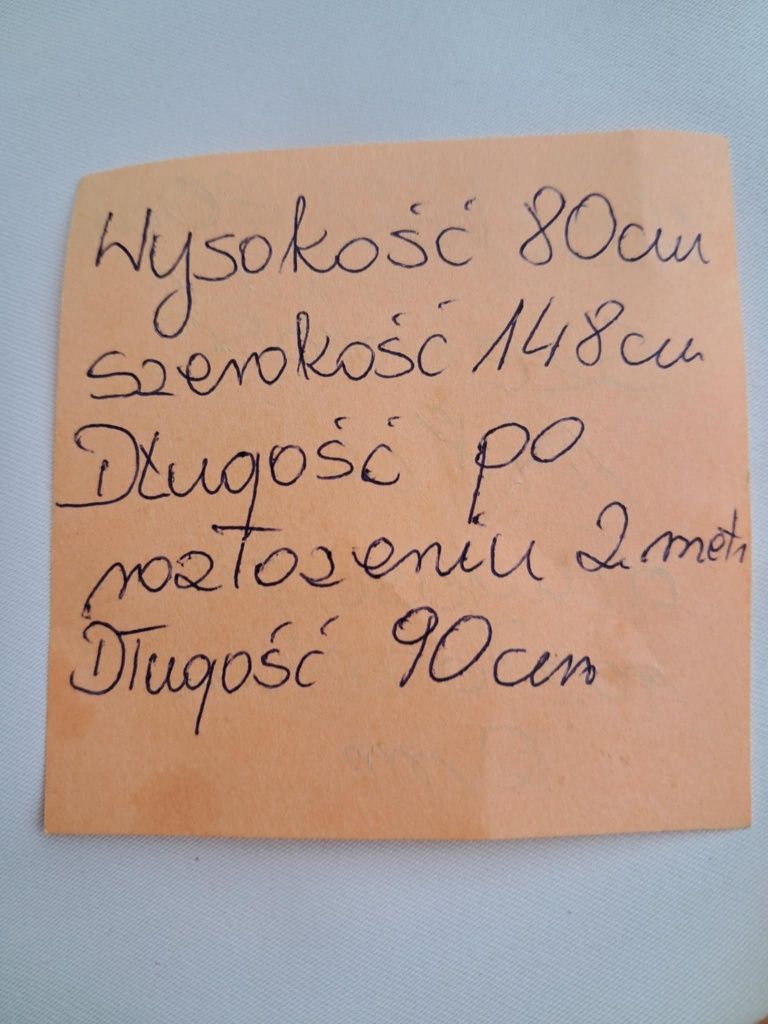 Wysokość 80cm
szerokość 148cm
Długość po
rozłozeniu 2 metr
Długość 90cm